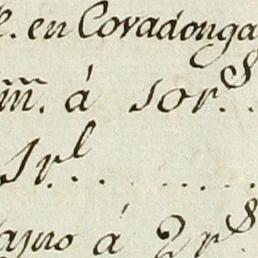 e. en Covadonga
m. á 10 r.s
1 r.l . . . . . .
ajno á 2 r.s